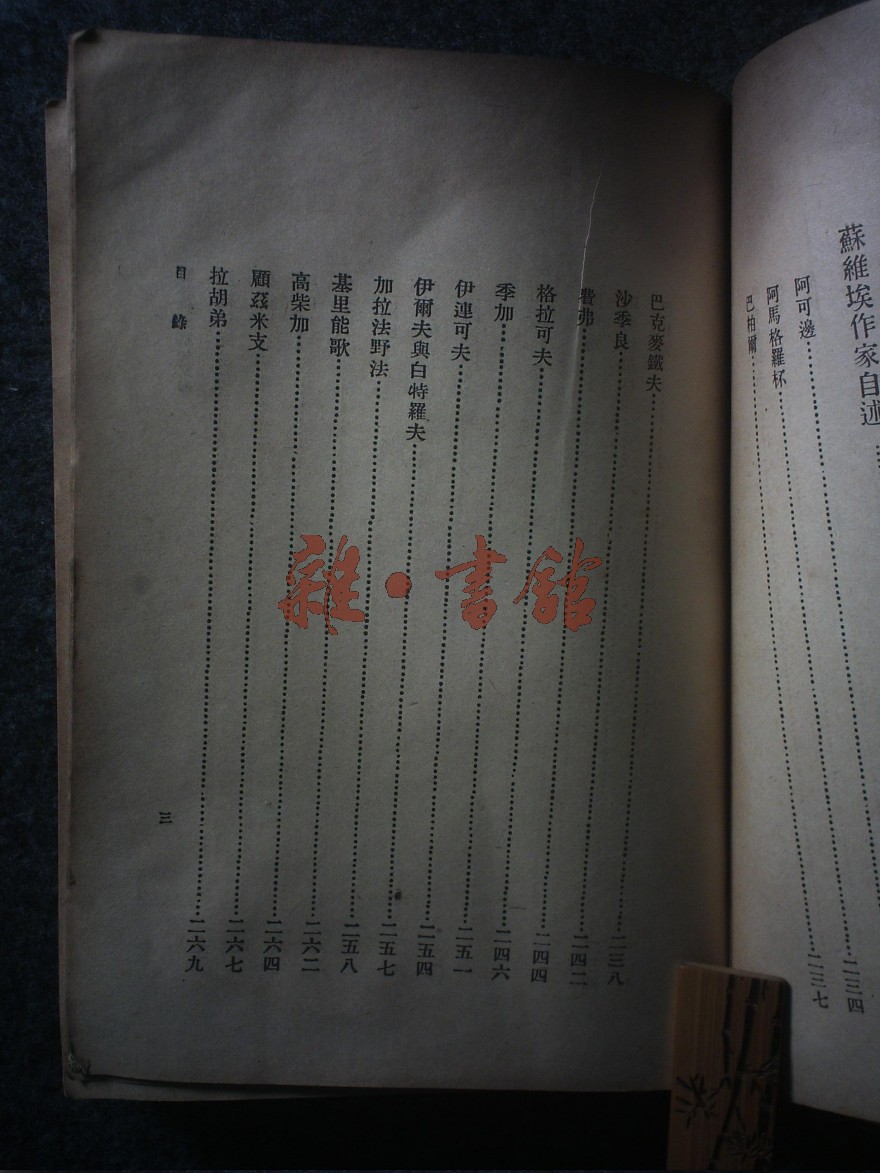 蘇維埃作家自述
阿可邊……二三四
阿馬格羅杯……二三七
巴柏爾……
巴克麥鐵夫……二三八
沙季良……二四二
費弗……二四四
格拉可夫……二四六
季加……二五一
伊連可夫……二五四
伊爾夫與白特羅夫……二五七
加拉法野法……二五八
基里能歌……二六二
高柴加……二六四
顧茲米支……二六七
拉胡弟……二六九
目錄
三
雜·書館